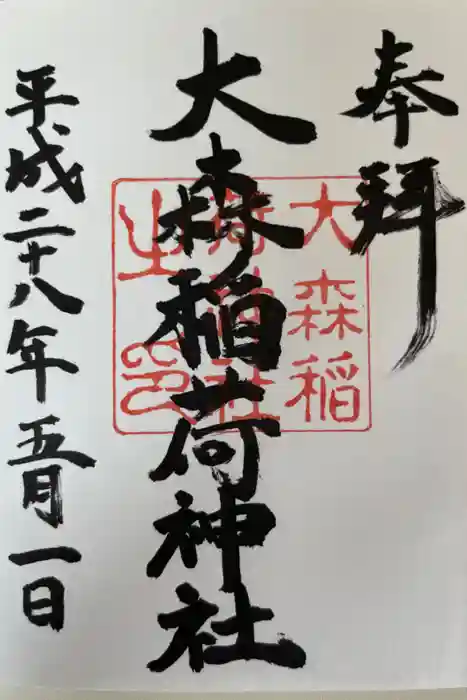 奉拝
大森稲荷神社
平成二十八年五月一日
大森稲
荷神社
之印